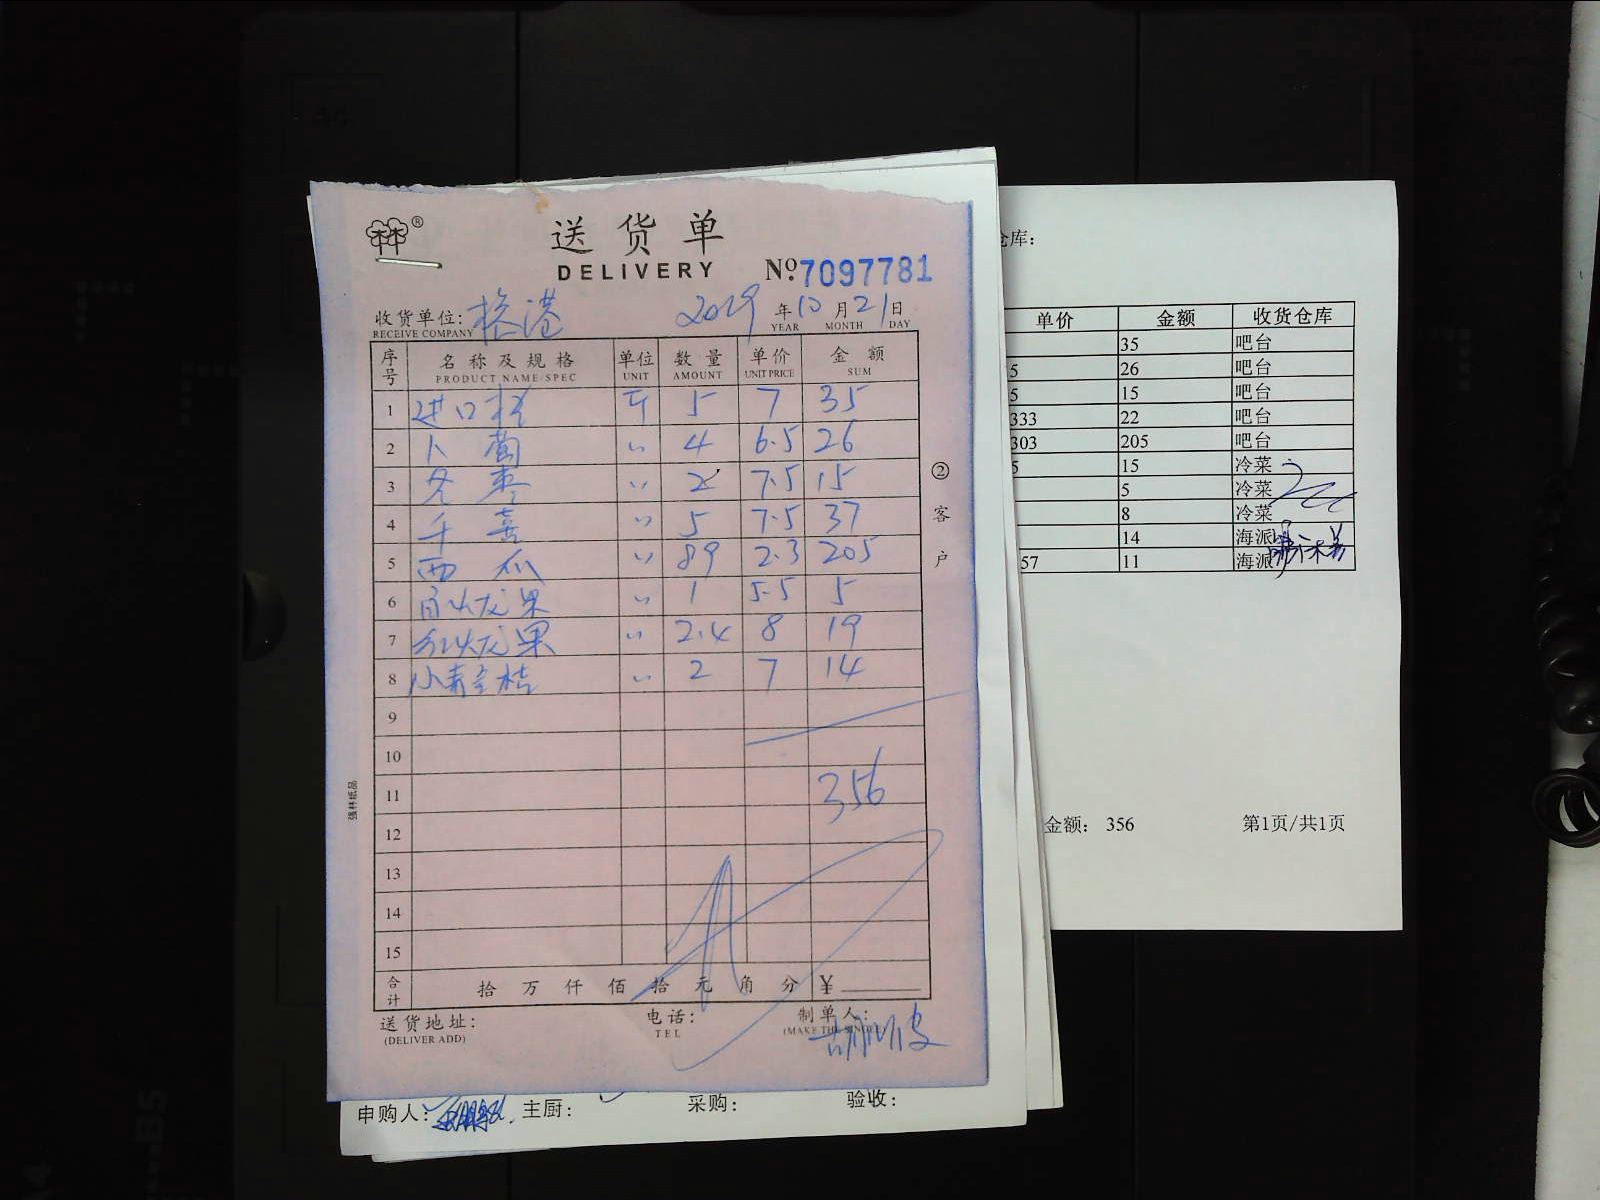 送货单
DELIVERY
Nº 7097781
收货单位: 2019年10月21日
RECEIVE COMPANY YEAR MONTH DAY
序号 名称及规格 单位 数量 单价 金额
PRODUCT NAME/SPEC UNIT AMOUNT UNIT PRICE SUM
1 进口 斤 5 7 35
2 卜萄 〃 4 6.5 26
3 冬枣 〃 2 7.5 15
4 千喜 〃 5 7.5 37
5 西瓜 〃 89 2.3 205
6 白火龙果 〃 1 5.5 5
7 红火龙果 〃 2.4 8 19
8 小青金桔 〃 2 7 14
9
10
11 356
12
13
14
15
合计 拾 万 仟 佰 拾 元 角 分 ¥
送货地址: 电话: 制单人:
(DELIVER ADD) TEL
② 客户
强林纸品
申购人: 主厨: 采购: 验收:
仓库:
单价 金额 收货仓库
35 吧台
5 26 吧台
5 15 吧台
333 22 吧台
303 205 吧台
5 15 冷菜
5 冷菜
8 冷菜
14 海派
57 11 海派
金额: 356 第1页/共1页